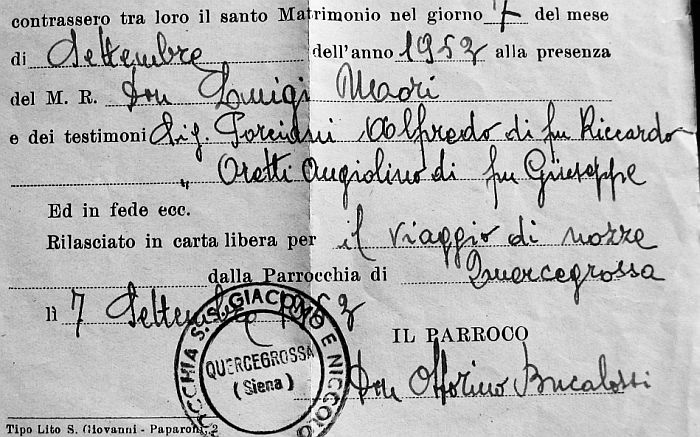 contrassero tra loro il santo Matrimonio nel giorno 7 del mese
di Settembre dell'anno 1953 alla presenza
del M. R. Don Luigi Madri
e dei testimoni Sig. Porciani Alfredo di fu Riccardo
" Oretti Angiolino di fu Giuseppe
Ed in fede ecc.
Rilasciato in carta libera per il viaggio di nozze
dalla Parrocchia di Quercegrossa
lì 7 Settembre 1953
IL PARROCO
Don Ottorino Bucalossi
OCCHIA S.S. GIACOMO E NICCOLO
QUERCEGROSSA
(Siena)
Tipo Lito S. Giovanni - Paparoni, 2